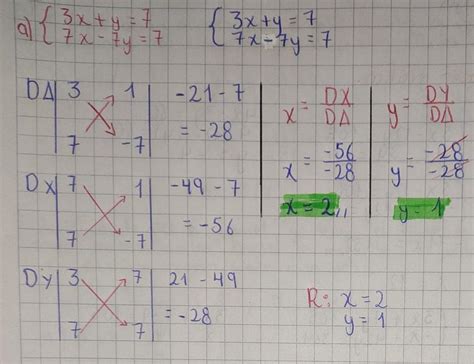 a) { 3x + y = 7
7x - 7y = 7
{ 3x + y = 7
7x - 7y = 7
DΔ | 3 1 | -21 - 7
7 -7 | = -28
DX | 7 1 | -49 - 7
7 -7 | = -56
DY | 3 7 | 21 - 49
7 7 | = -28
x = DX/DΔ
x = -56/-28
x = 2,,
y = DY/DΔ
y = -28/-28
y = 1
R: x = 2
y = 1